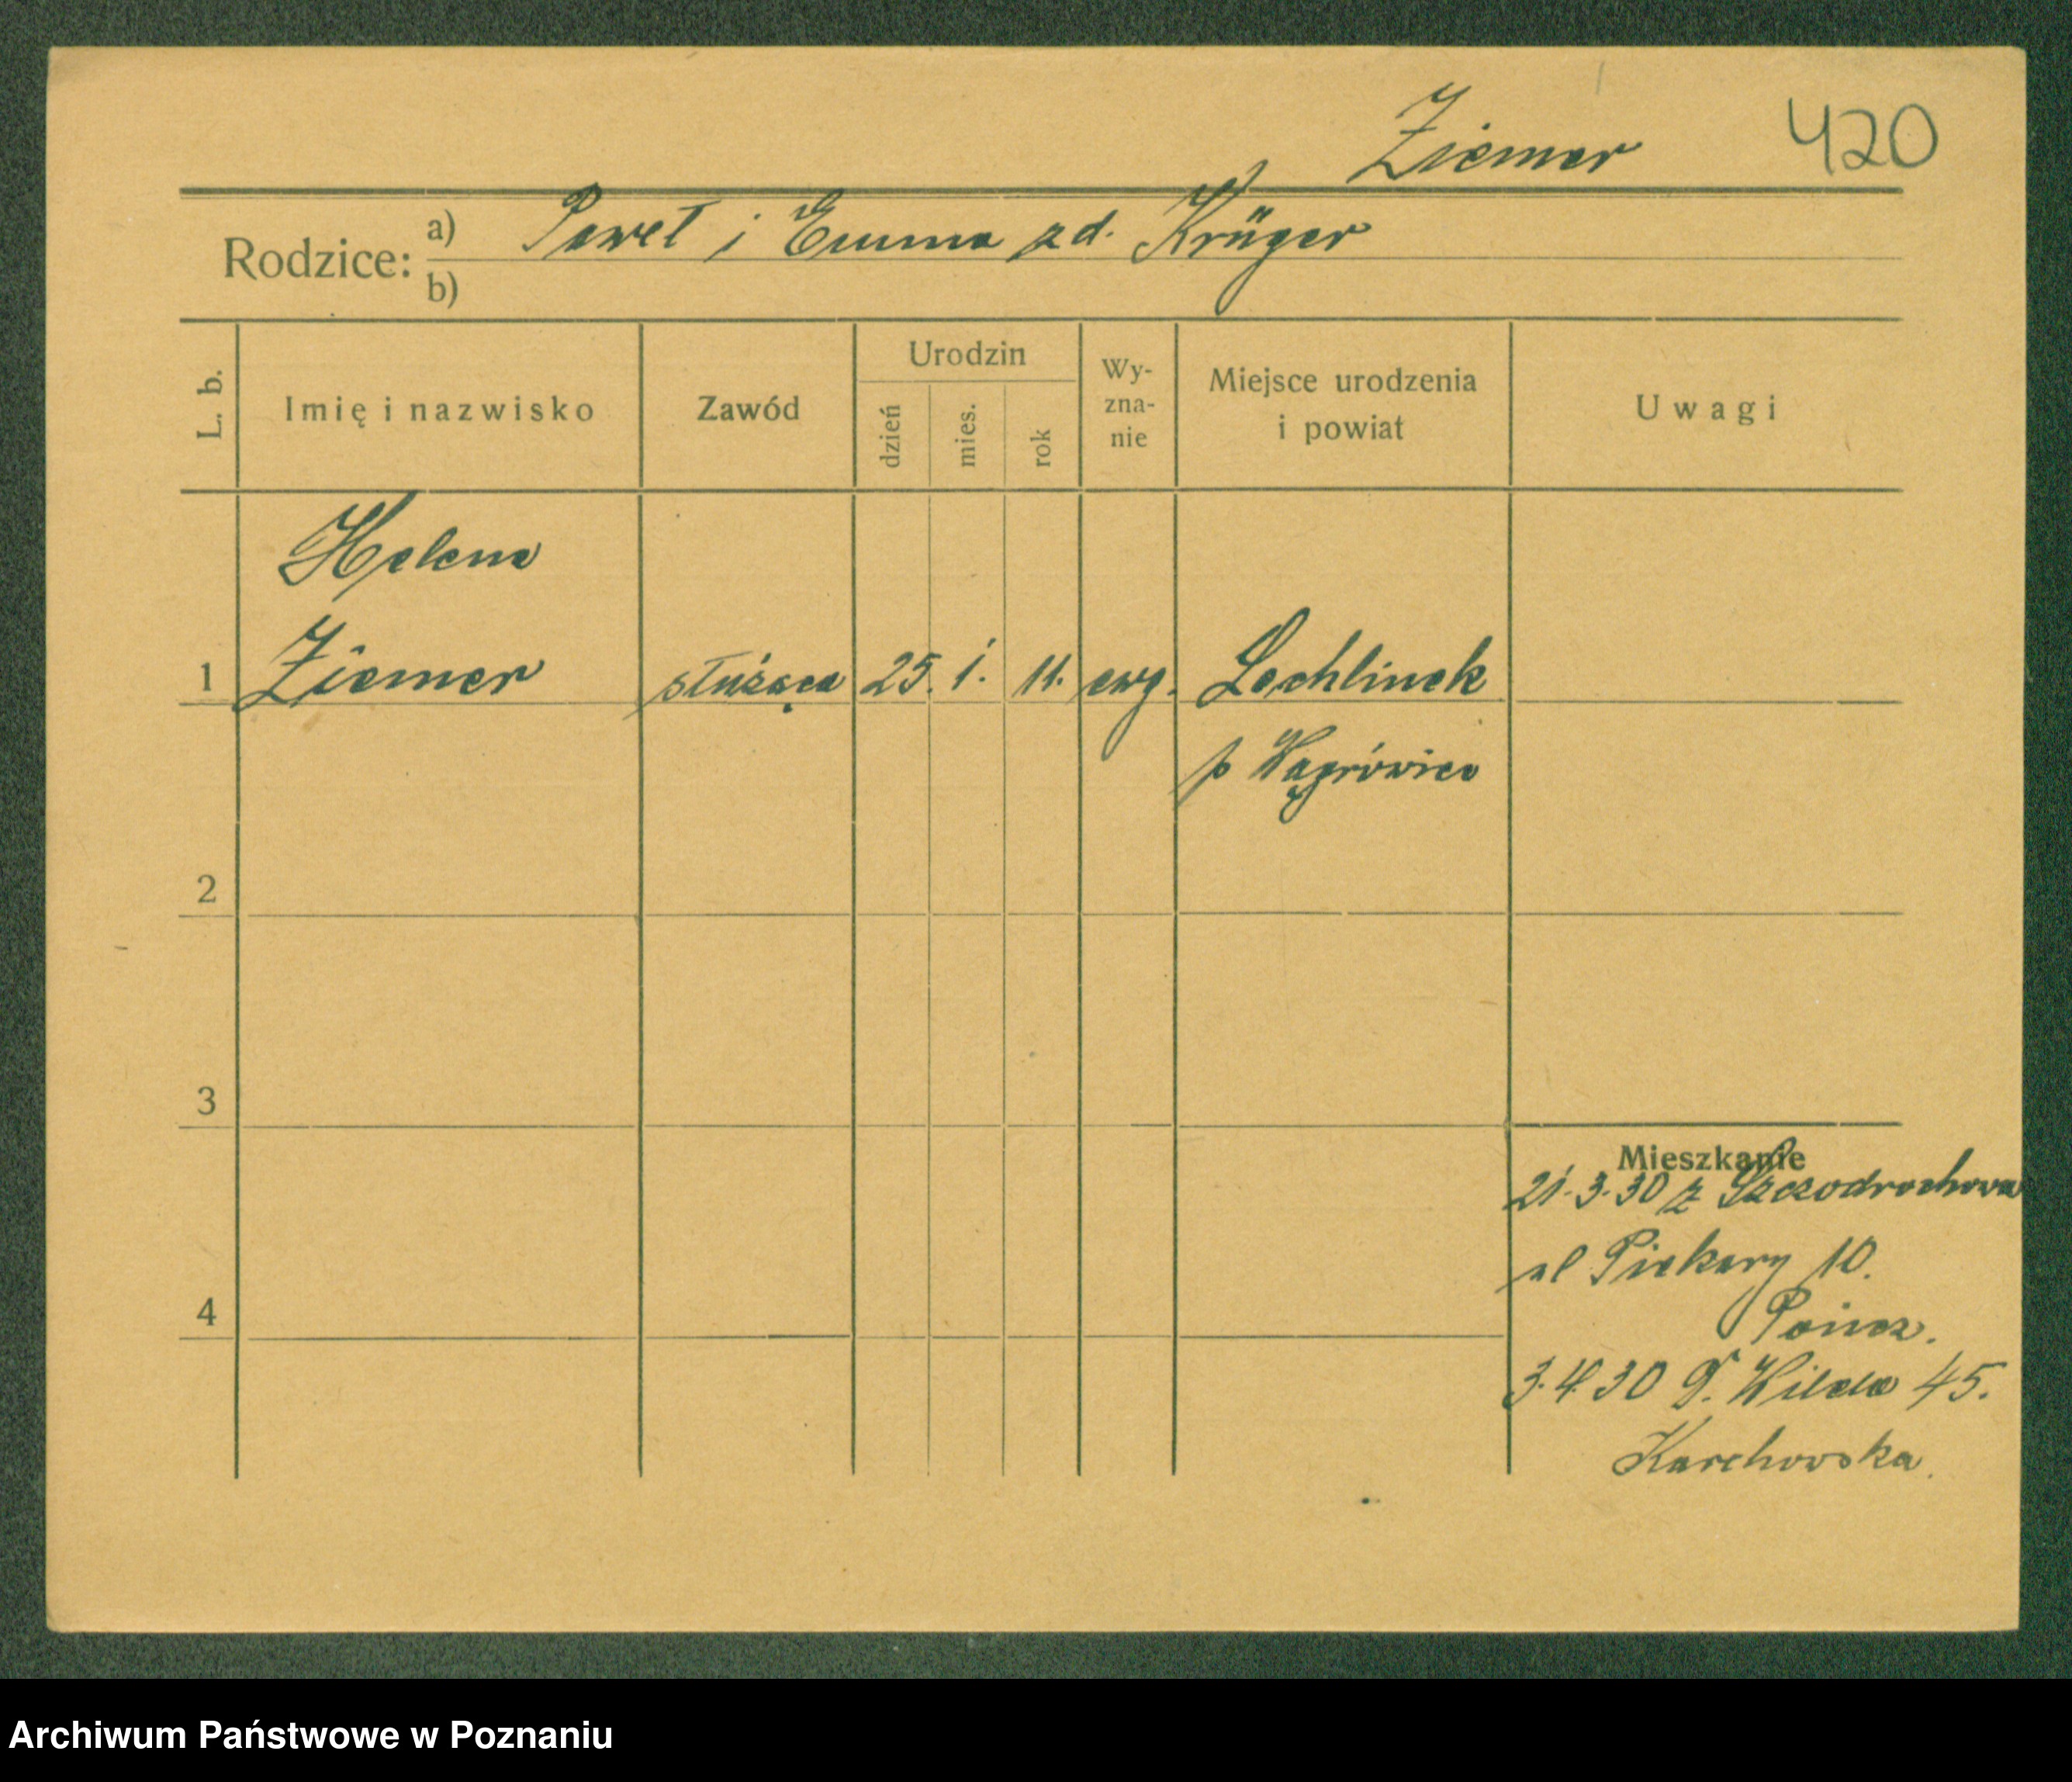 Ziemer 420
Rodzice: a) Paweł i Emma zd. Krüger
b)
L. b. Imię i nazwisko Zawód Urodzin dzień mies. rok Wy-zna-nie Miejsce urodzenia i powiat Uwagi
Helena
1 Ziemer służąca 25. 1. 11. ewg. Lechlinek
p Wągrówiec
2
3
Mieszkanie
21.3.30 z Szczodrochowa
ul Piekary 10.
4
3.4.30 G. Wilda 45.
Karchowska.
Archiwum Państwowe w Poznaniu